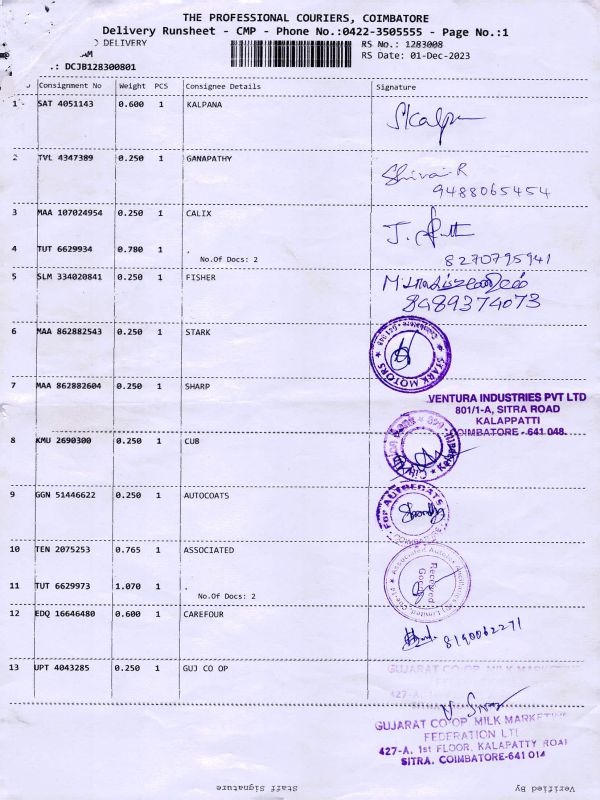 THE PROFESSIONAL COURIERS, COIMBATORE
Delivery Runsheet - CMP - Phone No.:0422-3505555 - Page No.:1
DELIVERY
RS No.: 1283008
RS Date: 01-Dec-2023
.: DCJB128300801
Consignment No Weight PCS Consignee Details Signature
1 SAT 4051143 0.600 1 KALPANA
2 TVL 4347389 0.250 1 GANAPATHY
9488065454
3 MAA 107024954 0.250 1 CALIX
4 TUT 6629934 0.780 1 .
No.Of Docs: 2
8270795941
5 SLM 334020841 0.250 1 FISHER
8489374073
6 MAA 862882543 0.250 1 STARK
STARK MOTORS
7 MAA 862882604 0.250 1 SHARP
VENTURA INDUSTRIES PVT LTD
801/1-A, SITRA ROAD
KALAPPATTI
COIMBATORE - 641 048.
8 KMU 2690300 0.250 1 CUB
9 GGN 51446622 0.250 1 AUTOCOATS
For AUTOCOATS
10 TEN 2075253 0.765 1 ASSOCIATED
11 TUT 6629973 1.070 1 .
No.Of Docs: 2
Received
12 EDQ 16646480 0.600 1 CAREFOUR
8190062271
13 UPT 4043285 0.250 1 GUJ CO OP
GUJARAT CO-OP MILK MARKET
427-A,
GUJARAT CO OP MILK MARKETING
FEDERATION LTD
427-A, 1st FLOOR, KALAPATTY ROAD
SITRA, COIMBATORE-641 014
Staff Signature
Verified By